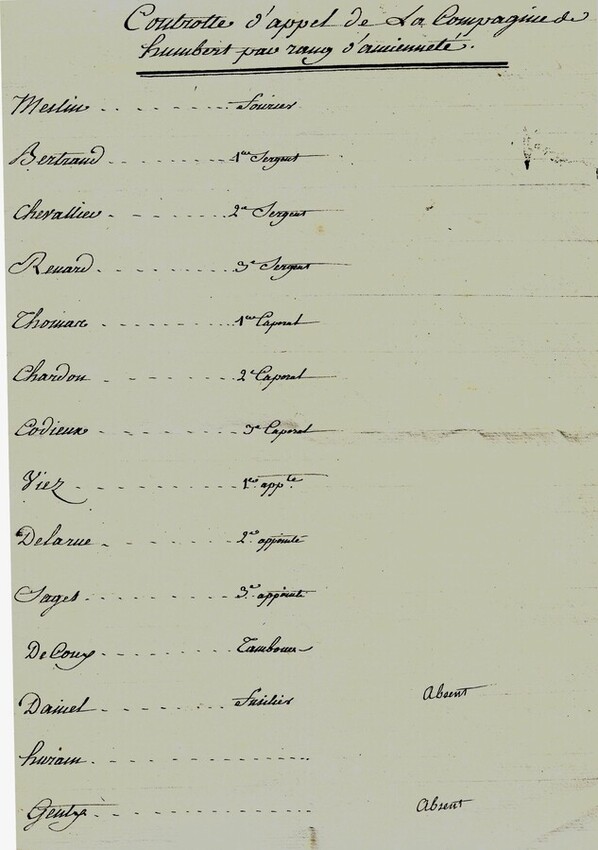 Controlle d'appel de La Compagnie de
humbert par rang d'ancienneté.
Meslin - - - - - - - - - - fourier
Bertrand - - - - - - - - - 1er Sergent
Chevallier - - - - - - - - 2e Sergent
Renard - - - - - - - - - - 3e Sergent
Thomas - - - - - - - - - - 1er Caporal
Chardon - - - - - - - - - 2e Caporal
Codieux - - - - - - - - - 3e Caporal
Viez - - - - - - - - - - - 1er appté
Delarue - - - - - - - - - 2e appointé
Sages - - - - - - - - - - 3e appointé
De Coux - - - - - - - - - Tambour
Daniel - - - - - - - - - - fusilier Absent
huriam - - - - - - - - - -
Gentye - - - - - - - - - - Absent